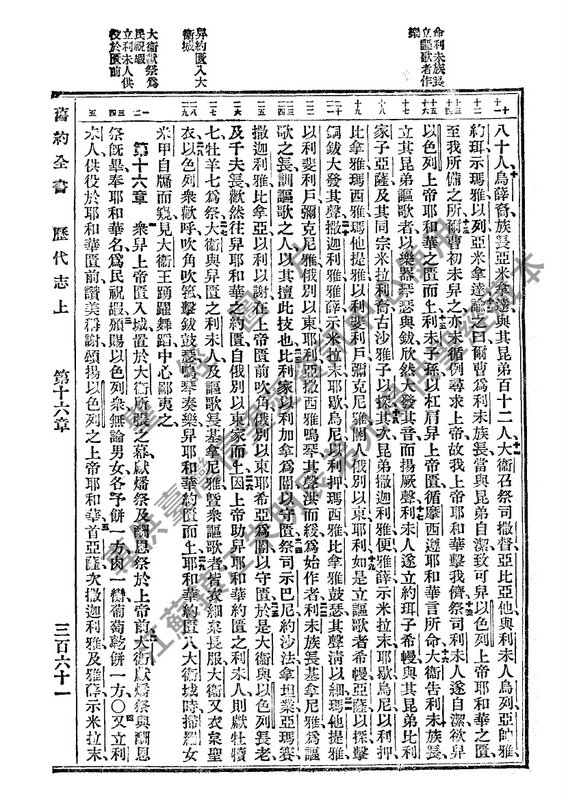 命利未族長
立謳歌者作
樂
舁約匱入大
衛城
大衛獻祭爲
民祝嘏
立利未人供
役於匱前
八十人烏薛裔族長亞米拿達與其昆弟百十二人大衛召祭司撒督亞比亞他與利未人烏列亞帥雅
約珥示瑪雅以列亞米拿達諭之曰爾曹爲利未族長當與昆弟自潔致可舁以色列上帝耶和華之匱
至我所備之所爾曹初未舁之亦未循例尋求上帝故我上帝耶和華擊我儕祭司利未人遂自潔欲舁
以色列上帝耶和華之匱而上利未子孫以杠肩舁上帝匱循摩西遵耶和華言所命大衛告利未族長
立其昆弟謳歌者以樂器琴瑟與鈸欣然大發其音而揚厥聲利未人遂立約珥子希幔與其昆弟比利
家子亞薩及其同宗米拉利裔古沙雅子以探其次昆弟撒迦利雅便雅薛示米拉末耶歇烏尼以利押
比拿雅瑪西雅瑪他提雅以利斐利戶彌克尼雅閽人俄別以東耶利如是立謳歌者希幔亞薩以探擊
銅鈸大發其聲撒迦利雅雅薛示米拉末耶歇烏尼以利押瑪西雅比拿雅鼓瑟其聲清以細瑪他提雅
以利斐利戶彌克尼雅俄別以東耶利亞撒西雅鳴琴其聲洪而緩爲始作者利未族長基拿尼雅爲謳
歌之長訓謳歌之人以其擅此技也比利家以利加拿爲閽以守匱祭司示巴尼約沙法拿坦業亞瑪賽
撒迦利雅比拿亞以利以謝在上帝匱前吹角俄別以東耶希亞爲閽以守匱於是大衛與以色列長老
及千夫長歡然往舁耶和華之約匱自俄別以東家而上因上帝助舁耶和華約匱之利未人則獻牡犢
七牡羊七爲祭大衛與舁匱之利未人及謳歌長基拿尼雅曁衆謳歌者皆衣細枲長服大衛又衣枲聖
衣以色列衆歡呼吹角吹箛擊鈸鼓瑟鳴琴奏樂舁耶和華約匱而上耶和華約匱入大衛城時掃羅女
米甲自牖而窺見大衛王踴躍舞蹈中心鄙夷之
第十六章 衆舁上帝匱入城置於大衛所張之幕獻燔祭及酬恩祭於上帝前大衛獻燔祭與酬恩
祭旣畢奉耶和華名爲民祝嘏頒賜以色列衆無論男女各予餅一方肉一臠葡萄乾餅一方〇又立利
未人供役於耶和華匱前讚美稱謝頌揚以色列之上帝耶和華首亞薩次撒迦利雅及雅薛示米拉末
舊約全書 歷代志上 第十六章 三百六十一